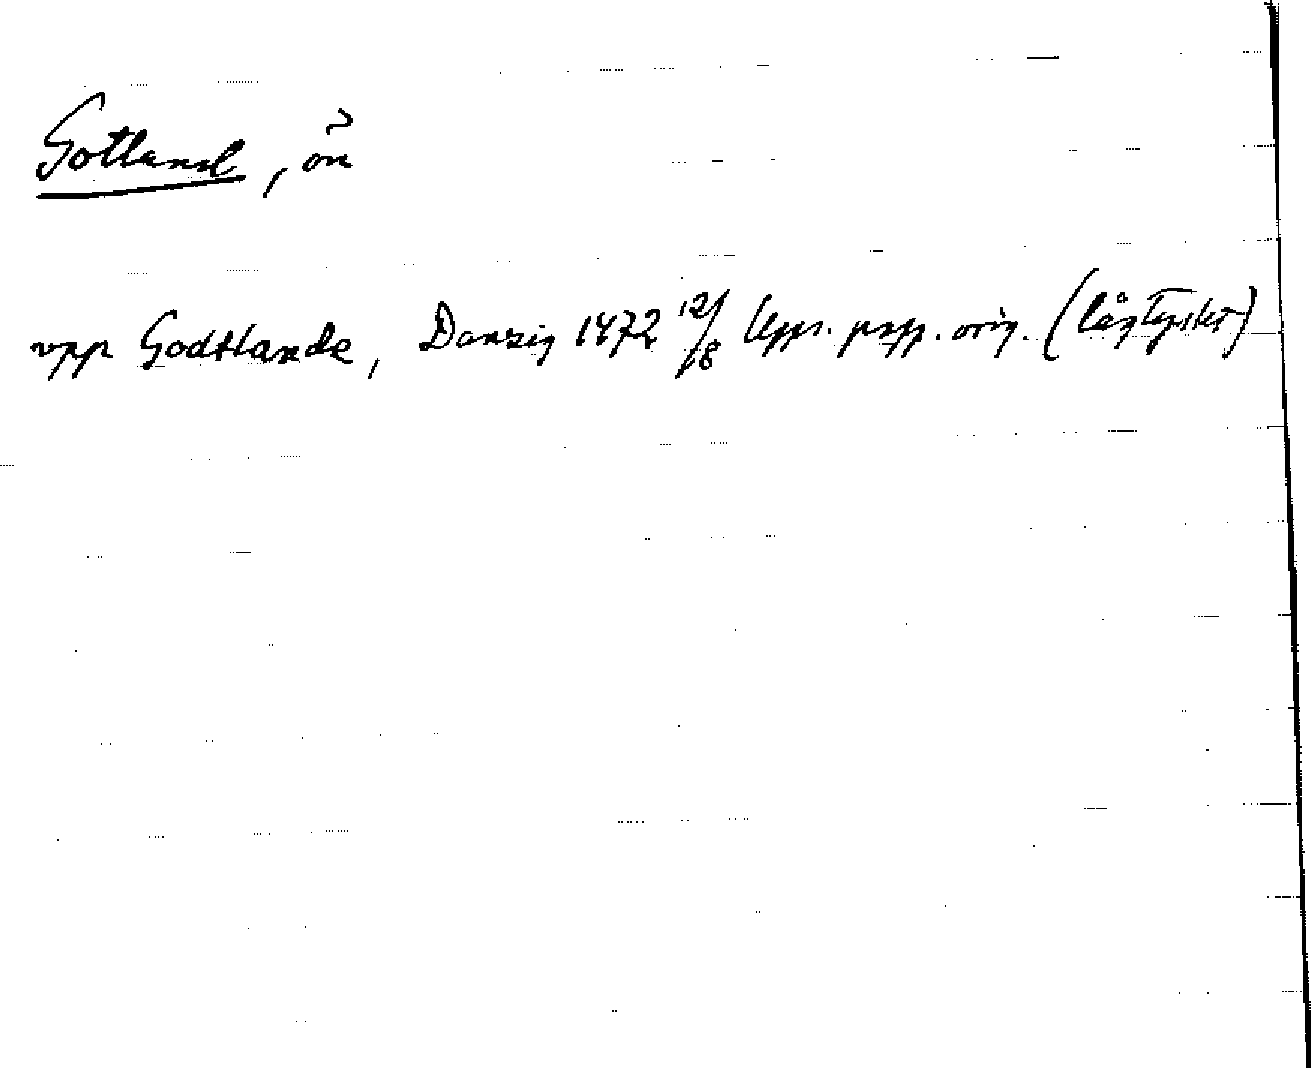 Gotland, ön
vpp Godtlande, Danzig 1472 12/8 Upps. papp. orig. (lågtyskt)